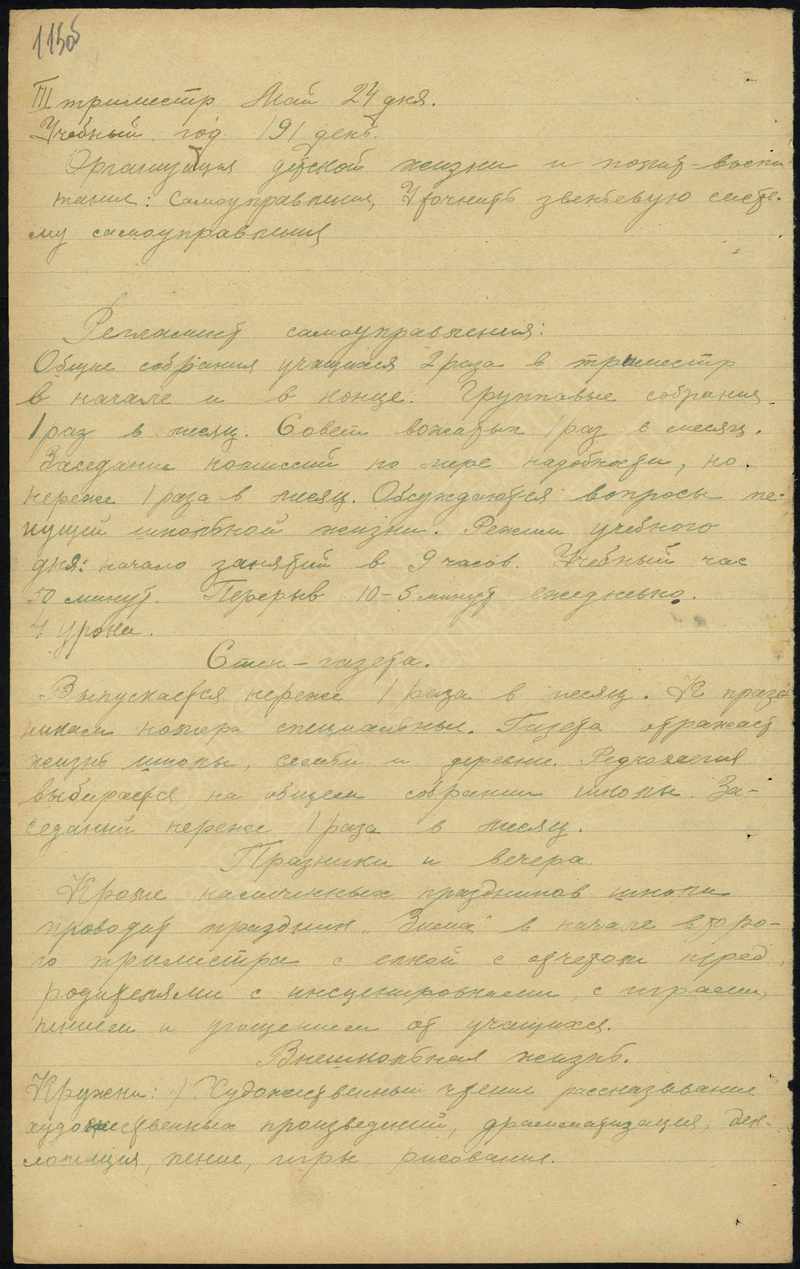 1150
III триместр Май 24 дня.
Учебный год 191 день.
Организация детской жизни и полит-воспи
тания: Самоуправления, Уточнить звеньевую систе-
му самоуправления
Регламент самоуправления:
Общие собрания учащихся 2 раза в триместр
в начале и в конце. Групповые собрания
1 раз в месяц. Совет вожатых 1 раз в месяц.
Заседание комиссий по мере надобности, но
нереже 1 раза в месяц. Обсуждаются вопросы те-
кущей школьной жизни. Режим учебного
дня: начало занятий в 9 часов. Учебный час
50 минут. Перерыв 10-5 минут ежедневно.
4 урока.
Стен-газета.
Выпускается нереже 1 раза в месяц. К празд
никам номера специальные. Газета отражает
жизнь школы, семьи и деревни. Редколлегия
выбирается на общем собрании школы. За-
седаний нереже 1 раза в месяц.
Празники и вечера
Кроме праздников школа
проводит праздник „Зима" в начале второ-
го триместра с елкой с отчетом перед
родителями с инсценировками, с играми,
пением и угощением от учащихся.
Внешкольная жизнь.
Кружки: 1) Художественный чтение рассказывание
художественных произведений, драматизация, дек-
ламация, пение, игры рисование.